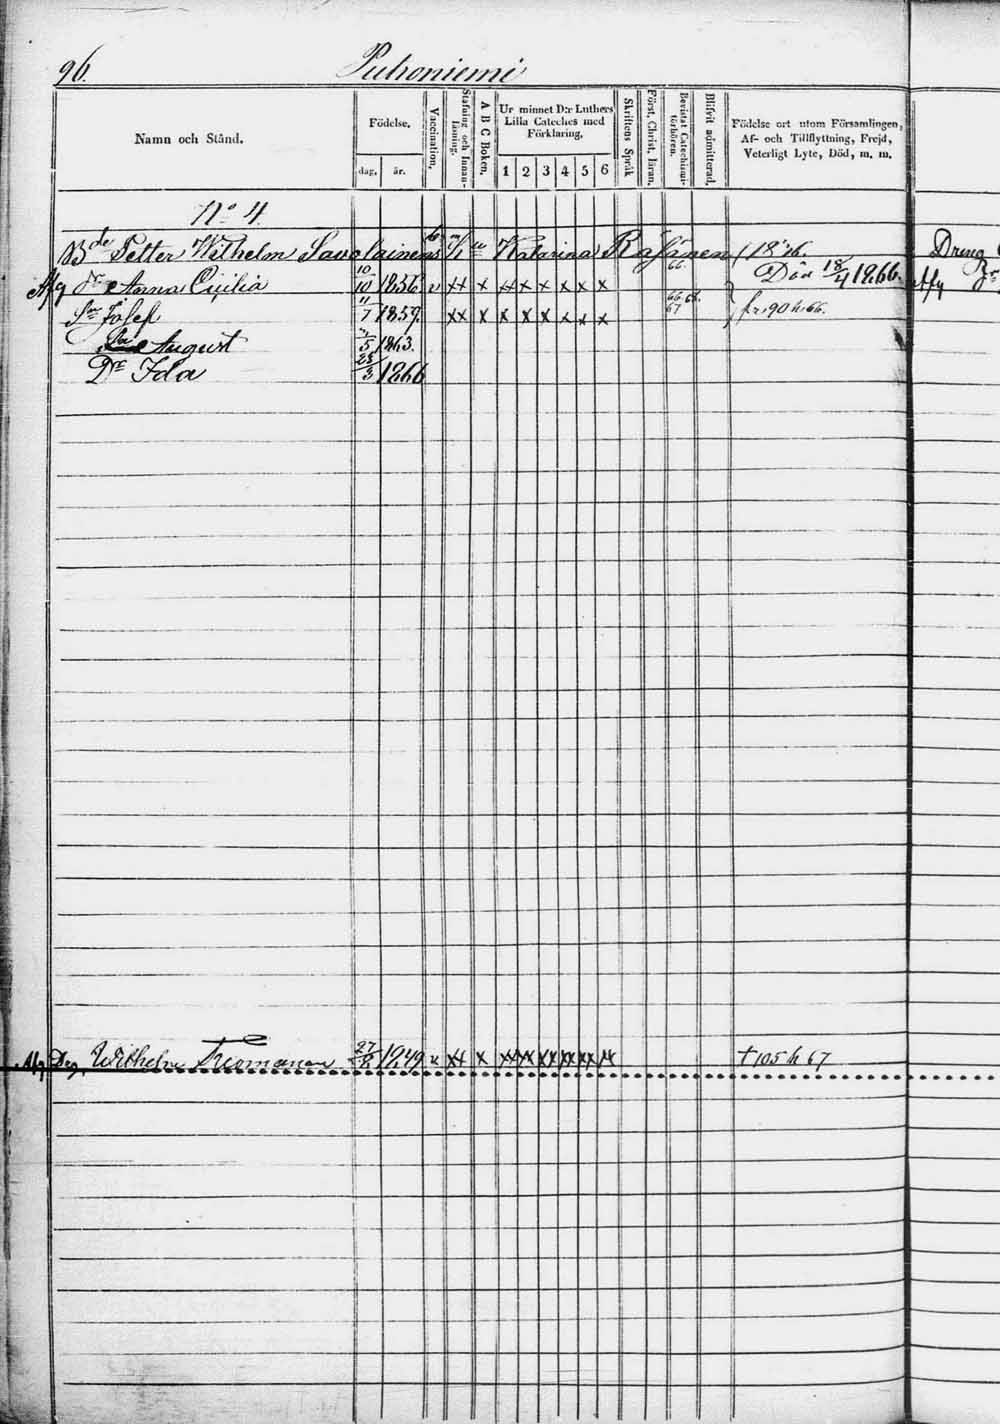 96. Puhoniemi
Namn och Stånd.
Födelse.
dag. år.
Vaccination.
Stafning och Innanläsning.
A B C Boken.
Ur minnet D:r Luthers
Lilla Cateches med
Förklaring.
1 2 3 4 5 6
Skriftens Språk
Först. Christ. läran.
Bevistat Catechismiförhören.
Blifvit admitterad.
Födelse ort utom Församlingen,
Af- och Tillflyttning, Frejd,
Veterligt Lyte, Död, m. m.
No 4
Bde Petter Wilhelm Savolainens Katarina Räsänen f 18
Afg Dr Anna Cicilia 10/10 1856 v xx x xx x x x x x 66 Död 18/4 1866.
Sn Josef 11/7 1859. xx x x x x x x x fr. 90 h. 66.
August /5 1863.
Dr Ida 28/3 1866
Afg Drg Wilhelm 27/2 1849 v xx x xx xx xx xx xx † 105 h 67
Dreng
Afg